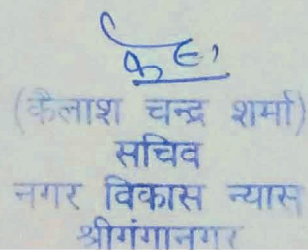 (कैलाश चन्द्र शर्मा)
सचिव
नगर विकास न्यास
श्रीगंगानगर